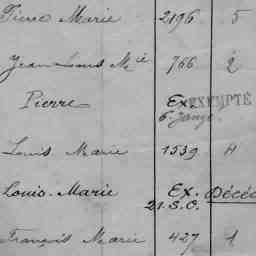 Pierre Marie 2196 5
Jean Louis Mie 766 2
Pierre Ex. EXEMPTÉ
6.
Louis Marie 1539 4
Louis-Marie Ex. Décéd
21.S.O.
François Marie 427 1